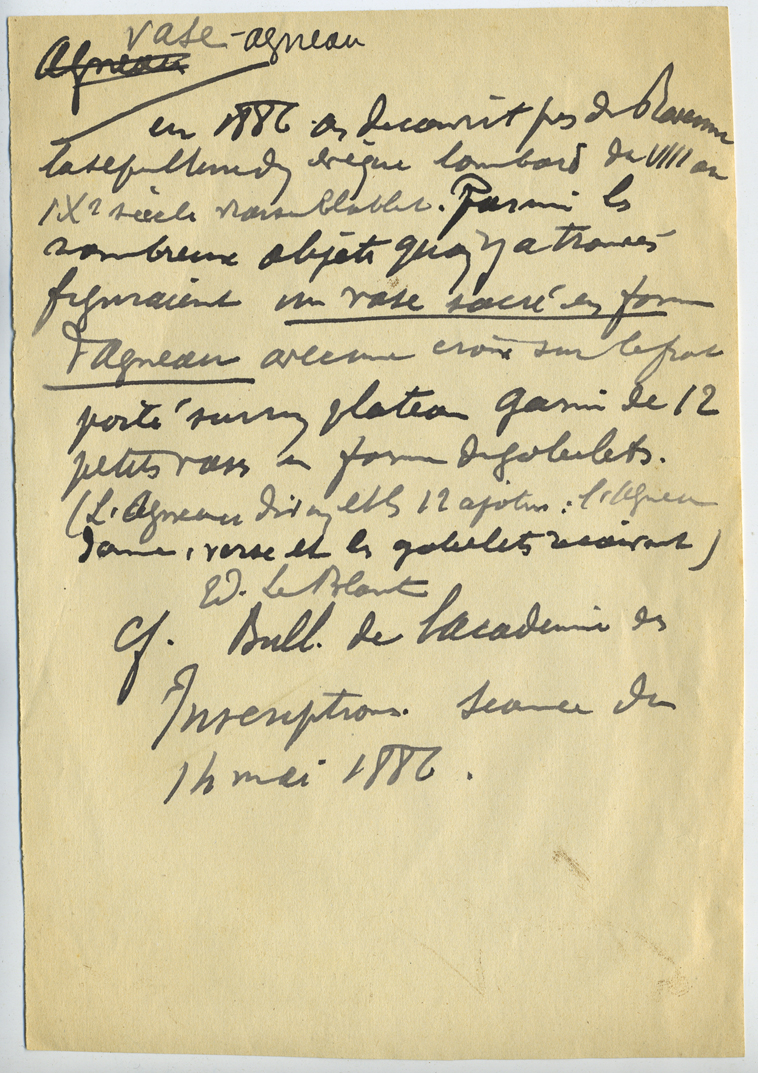 vase-agneau
Agneau
en 1886 on decouvrit pres de Ravenne
la sepulture d'un évèque lombard du VIII au
IXe siècle vraisemblablet. Parmi les
nombreux objets qu'on y a trouvés
figuraient un vase sacré en forme
d'Agneau avec une croix sur le front
porté sur un plateau garni de 12
petits vases en forme de gobelets.
(L'Agneau divin et les 12 apotres : l'Agneau
donne, verse et les gobelets reçoivent)
Ed. Le Blant
Cf. Bull. de l'academie des
Inscriptions. Seance du
14 mai 1886.